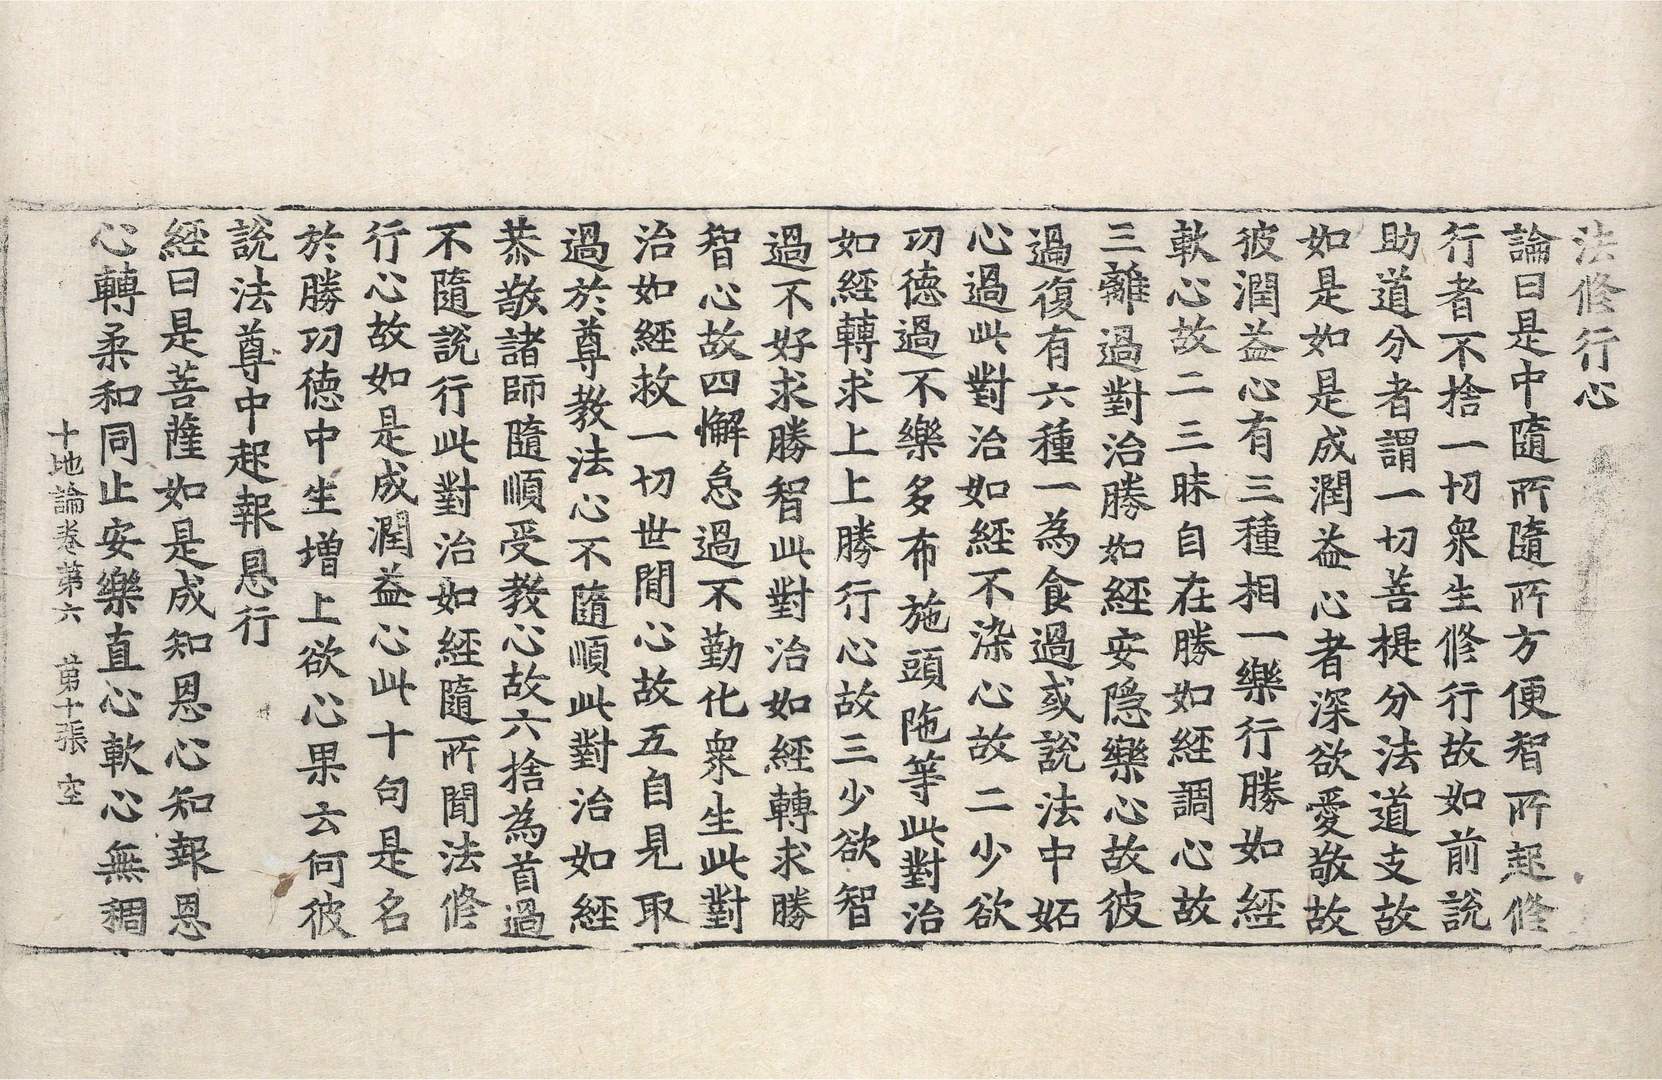 法修行心
論曰是中隨所隨所方便智所起修
行者不捨一切衆生修行故如前說
助道分者謂一切菩提分法道支故
如是如是成潤益心者深欲愛敬故
彼潤益心有三種相一樂行勝如經
軟心故二三昧自在勝如經調心故
三離過對治勝如經安隱樂心故彼
過復有六種一為食過或說法中妬
心過此對治如經不染心故二少欲
功德過不樂多布施頭陁等此對治
如經轉求上上勝行心故三少欲智
過不好求勝智此對治如經轉求勝
智心故四懈怠過不勤化衆生此對
治如經救一切世間心故五自見取
過於尊教法心不隨順此對治如經
恭敬諸師隨順受教心故六捨為首過
不隨說行此對治如經隨所聞法修
行心故如是成潤益心此十句是名
於勝功德中生增上欲心果云何彼
說法尊中起報恩行
經曰是菩薩如是成知恩心知報恩
心轉柔和同止安樂直心軟心無稠
十地論卷第六 第十張 空